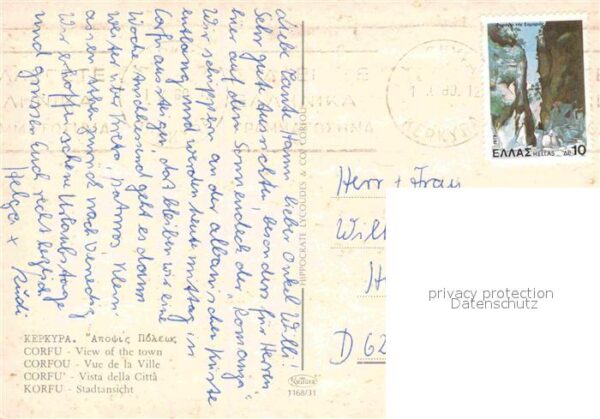 Liebe Tante Hanni, lieber Onkel Willi!
Sehr gute Aussichten, besonders für Herren,
hier auf dem Sonnendeck der "Romanza"
Wir schippern an der albanischen Küste
entlang und werden heute mittag in
Corfu aussteigen, das bleiben wir eine
Woche. Anschliessend geht es dann
weiter über Kreta, Patmos, Klein-
asien, Athen nach Venedig
Wir erhoffen schöne Urlaubstage
und grüssen Euch recht herzlich
Helga + Rudi
ΚΕΡΚΥΡΑ. "Αποψις Πόλεως
CORFU - View of the town
CORFOU - Vue de la Ville
CORFU' - Vista della Città
KORFU - Stadtansicht
HIPPOCRATE LYCOUDES & CO CORFOU
1168/31
ΚΕΡΚΥΡΑ
ΕΛΛΑΣ HELLAS ΔΡ 10
Herr + Frau
Will
H
D 62
privacy protection
Datenschutz